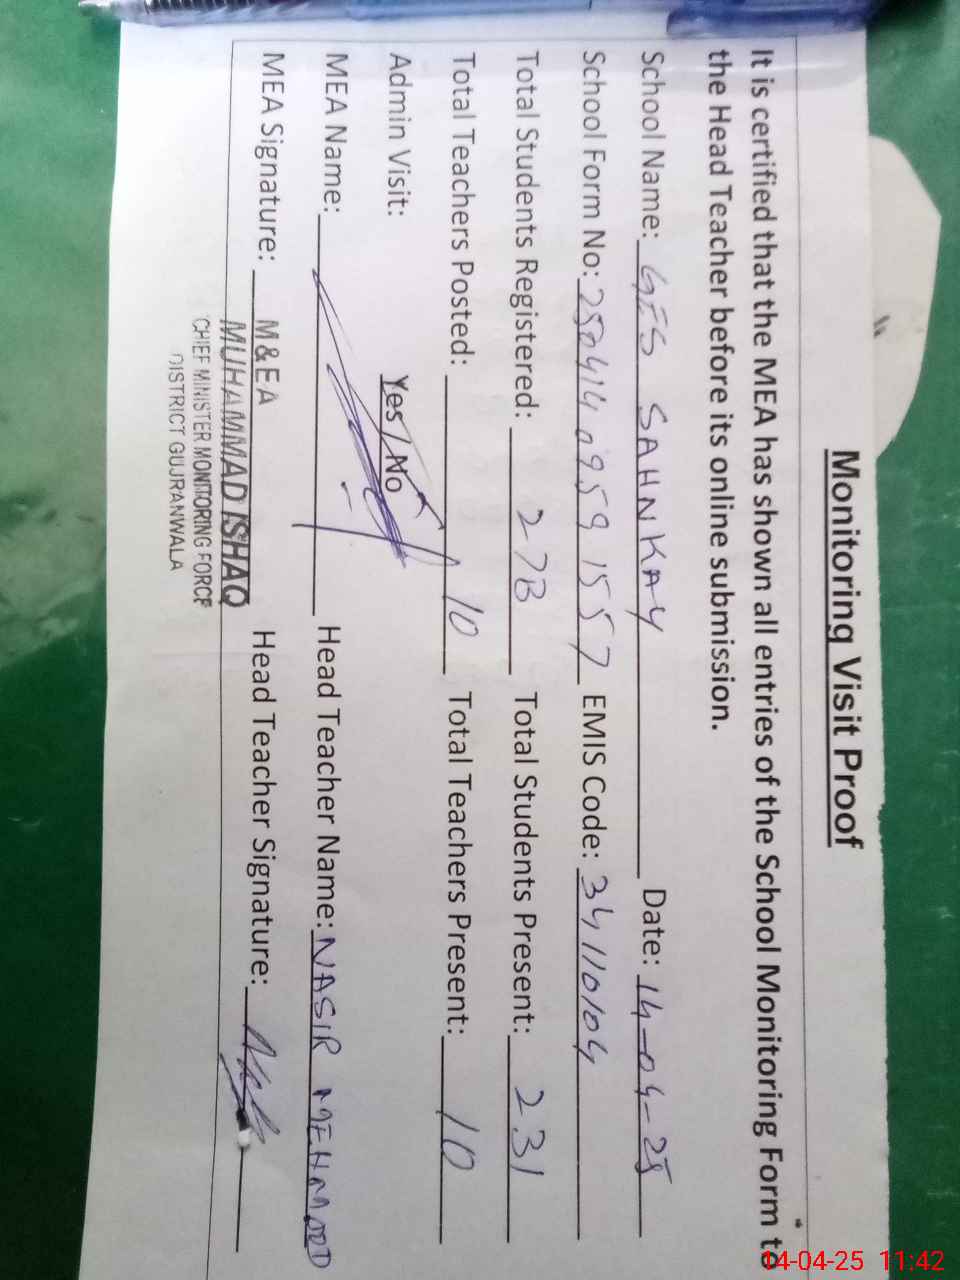 Monitoring Visit Proof
It is certified that the MEA has shown all entries of the School Monitoring Form to
the Head Teacher before its online submission.
School Name: GES SAHNKAY Date: 14-04-25
School Form No: 250414095915557 EMIS Code: 34110104
Total Students Registered: 278 Total Students Present: 231
Total Teachers Posted: 10 Total Teachers Present: 10
Admin Visit: Yes / No
MEA Name: Head Teacher Name: NASIR MEHMOOD
MEA Signature: M&EA Head Teacher Signature:
MUHAMMAD ISHAQ
CHIEF MINISTER MONITORING FORCE
DISTRICT GUJRANWALA
14-04-25 11:42